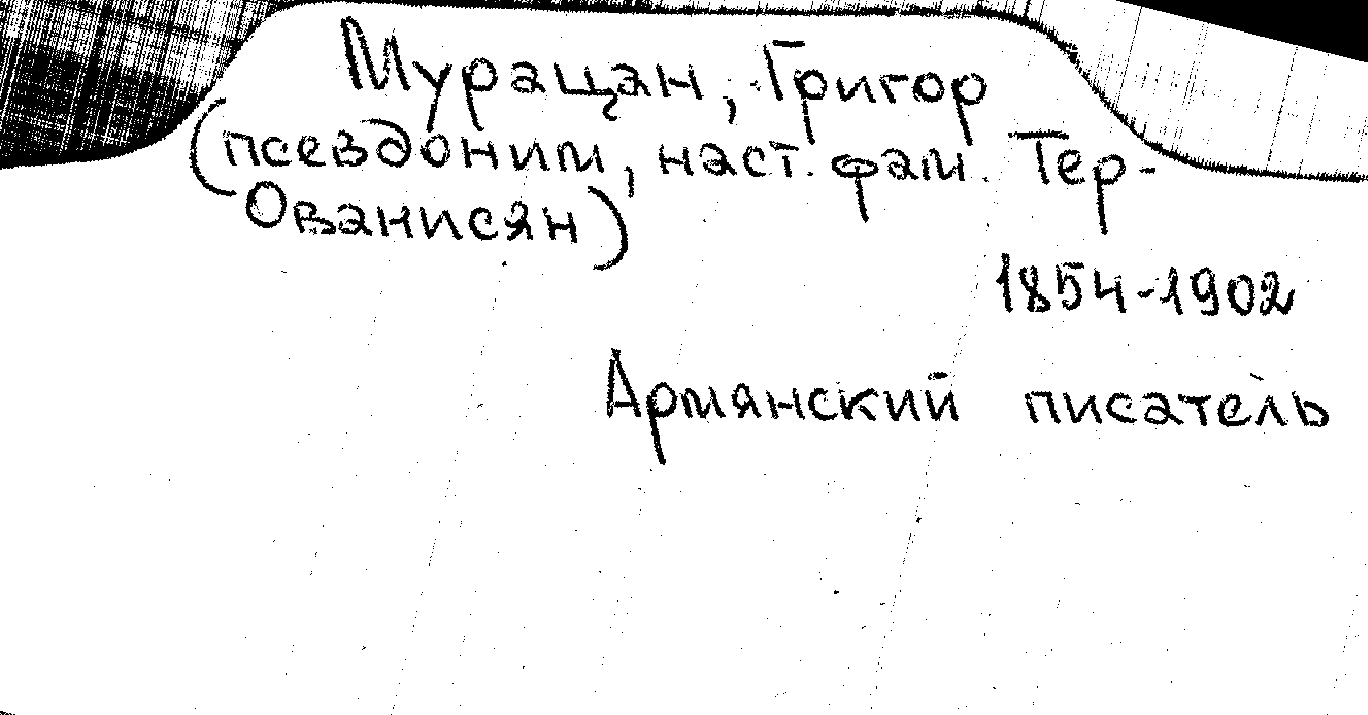 Мурацан, Григор
(псевдоним, наст. фам. Тер-
Ованисян)
1854-1902
Армянский писатель